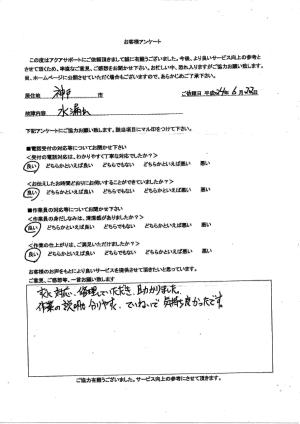 お客様アンケート
この度はアクアサポートにご依頼頂きまして誠に有難うございました。今後、より良いサービス向上の参考と
させて頂くため、率直なご意見、ご感想をお聞かせ下さい。お忙しい中、恐れ入りますがご協力お願い致します。
尚、ホームページに公開させていただく場合もございますので、あらかじめご了承下さい。
居住地 神戸 市 ご依頼日 平成24年 6月 22日
故障内容 水漏れ
下記アンケートにご協力お願い致します。該当項目にマル印をつけて下さい。
■電話受付の対応等についてお聞かせ下さい
<受付の電話対応は、わかりやすく丁寧な対応でしたか?>
良い どちらかといえば良い どちらでもない どちらかといえば悪い 悪い
<お伝えしたお時間どおりにお伺いすることができていましたか?>
良い どちらかといえば良い どちらでもない どちらかといえば悪い 悪い
■作業員の対応等についてお聞かせ下さい
<作業員の身だしなみは、清潔感がありましたか?>
良い どちらかといえば良い どちらでもない どちらかといえば悪い 悪い
<作業の仕上がりは、ご満足いただけましたか?>
良い どちらかといえば良い どちらでもない どちらかといえば悪い 悪い
お客様のお声をもとにより良いサービスを提供させて頂きたいと思っています。
ご意見、ご感想等、一言お願い致します
対応、修理していただき、助かりました。
作業の説明も分りやすく、ていねいで気持ち良かったです。
ご協力有難うございました。サービス向上の参考にさせて頂きます。